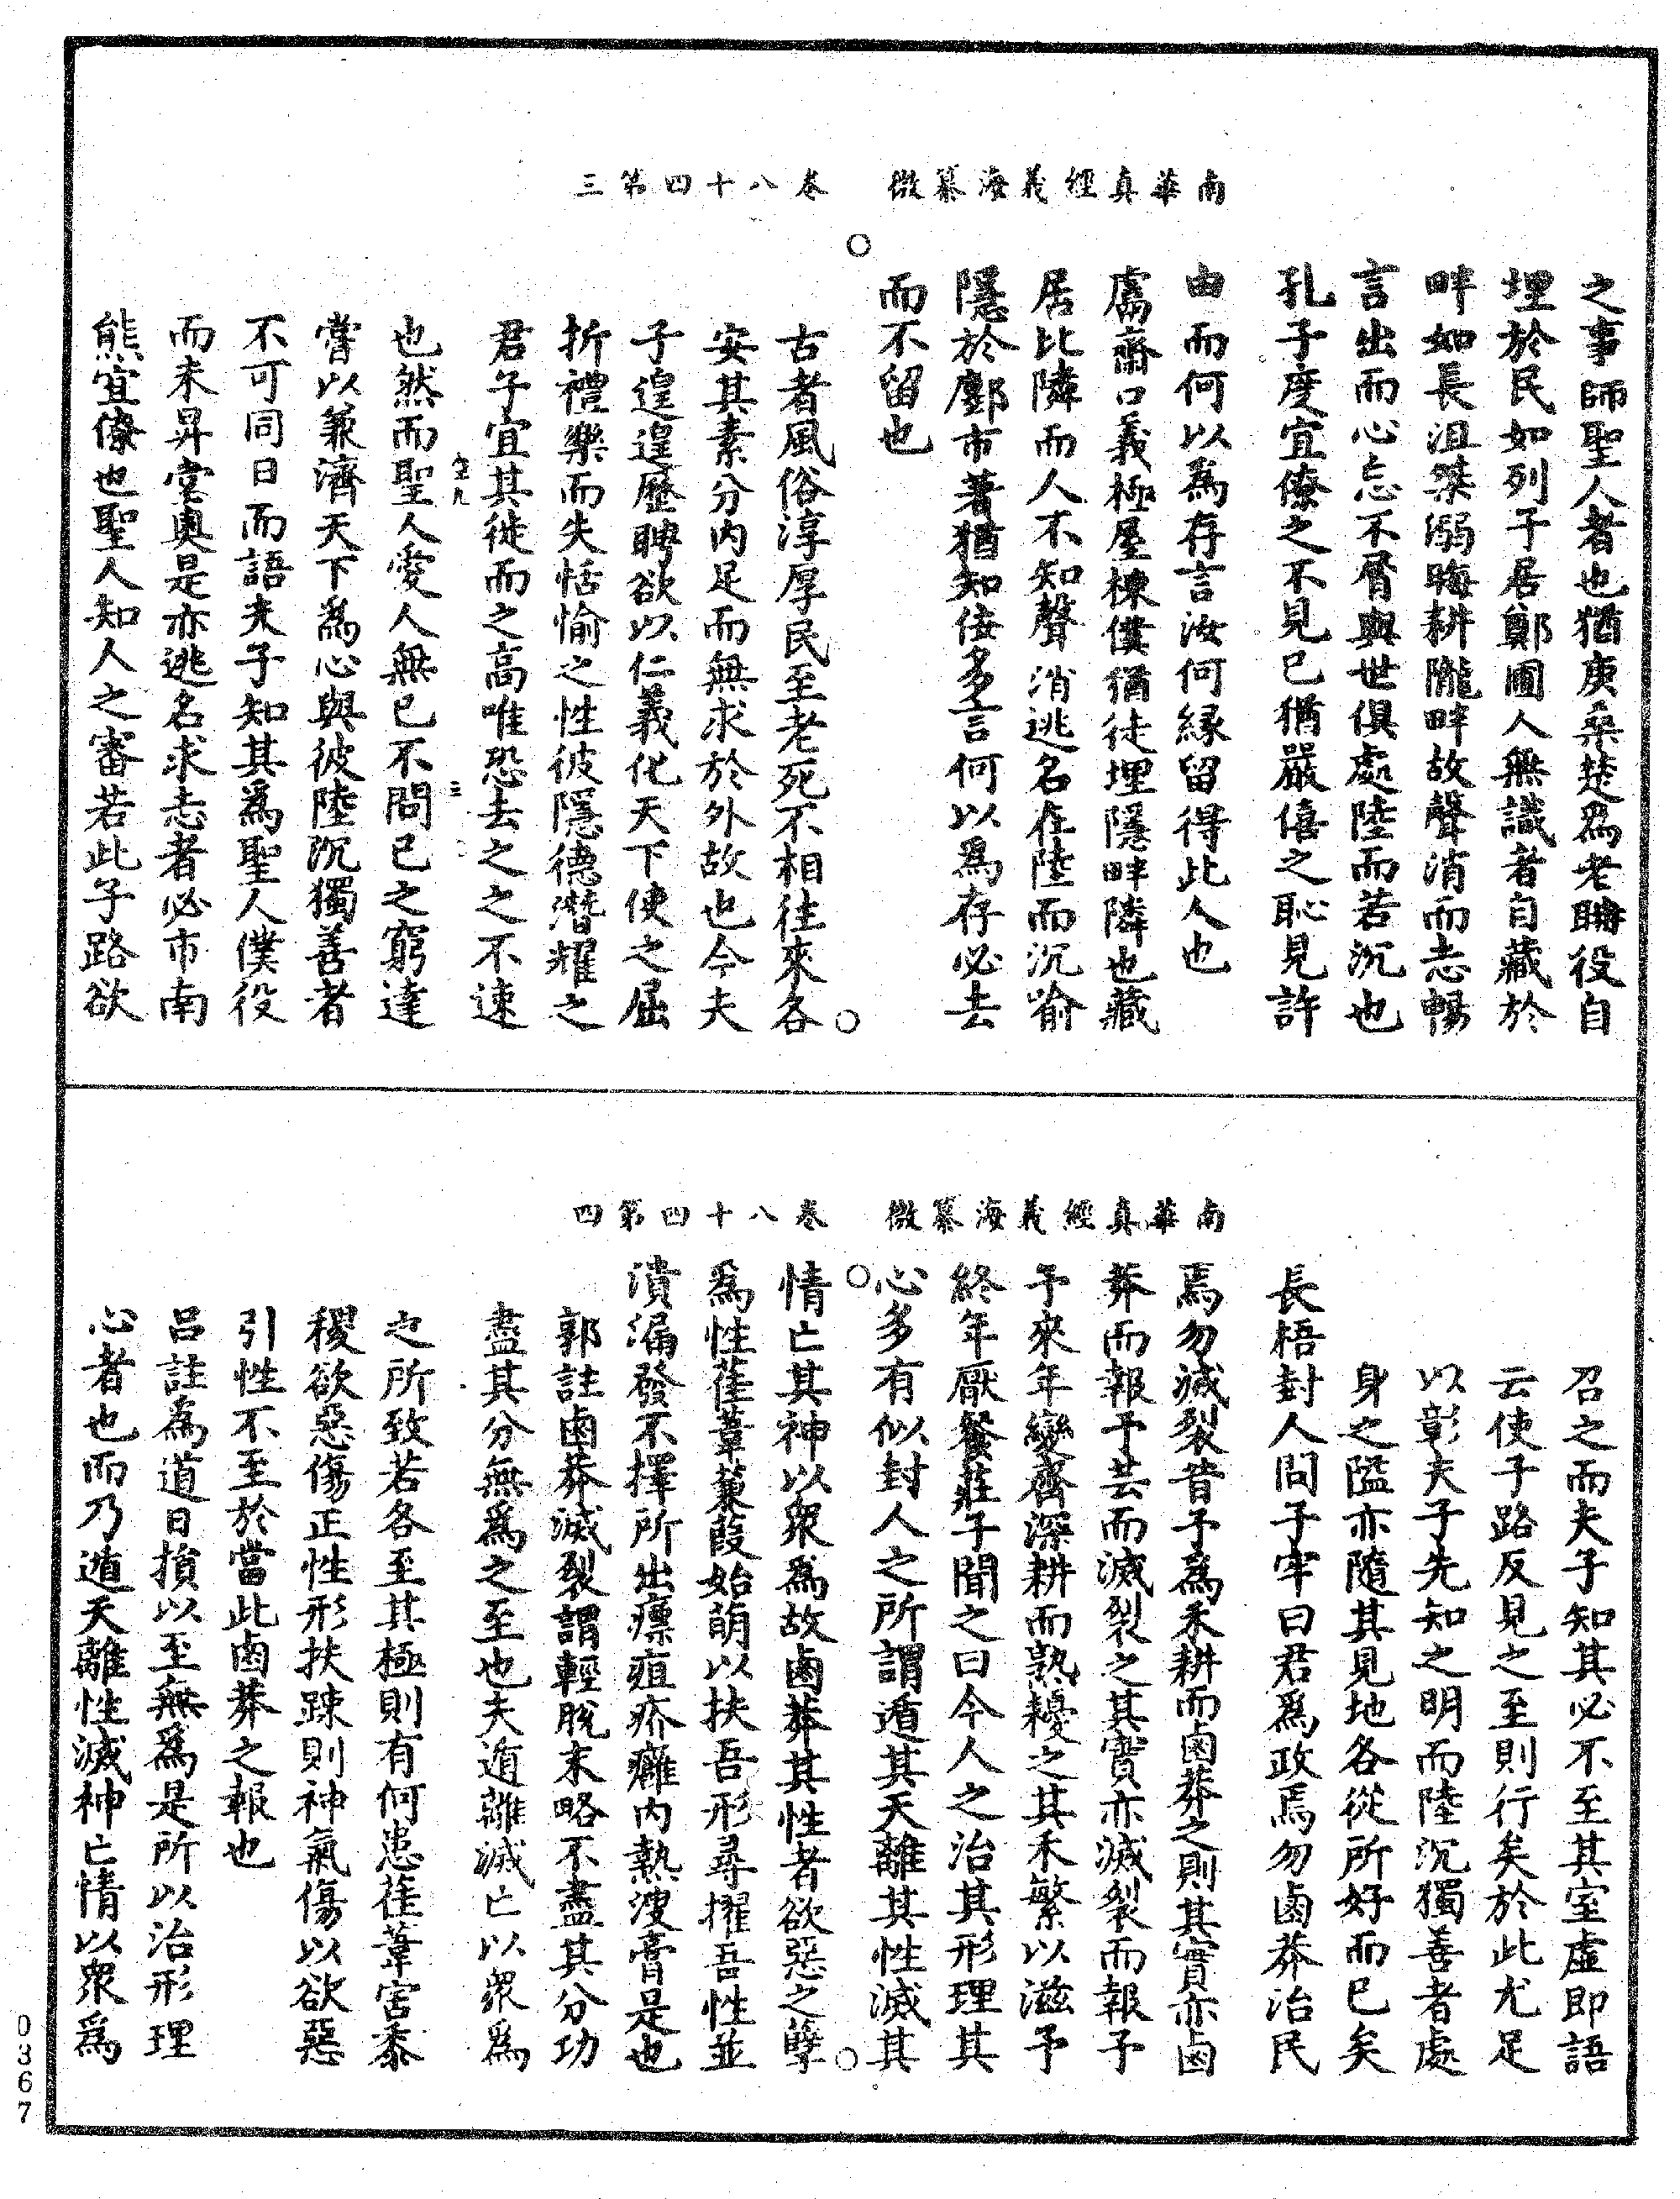 南華真經義海纂微　卷八十四第三
之事師聖人者也猶庚桑楚爲老聃役自
埋於民如列子居鄭圃人無識者自藏於
畔如長沮桀溺晦耕隴畔故聲消而志暢
言出而心忘不屑與世俱處陸而若沉也
孔子度宜僚之不見已猶嚴僖之恥見許
由而何以爲存言汝何緣留得此人也
鬳齋口義極屋棟僕猶徒埋隱畔隣也藏
居比隣而人不知聲消逃名在陸而沉喻
隱於鄽市著猶知佞多言何以爲存必去
而不留也
○
古者風俗淳厚民至老死不相往來各○
安其素分內足而無求於外故也今夫
子遑遑歷聘欲以仁義化天下使之屈
折禮樂而失恬愉之性彼隱德潛耀之
君子宜其徙而之高唯恐去之之不速
也然而聖人愛人無已不問已之窮達
嘗以兼濟天下爲心與彼陸沉獨善者
不可同日而語夫子知其爲聖人僕役
而未昇堂奧是亦逃名求志者必市南
熊宜僚也聖人知人之審若此子路欲
南華真經義海纂微　卷八十四第四
召之而夫子知其必不至其室虛即語
云使子路反見之至則行矣於此尤足
以彰夫子先知之明而陸沉獨善者處
身之隘亦隨其見地各從所好而已矣
長梧封人問子牢曰君爲政焉勿鹵莽治民
焉勿滅裂昔予爲禾耕而鹵莽之則其實亦鹵
莽而報予芸而滅裂之其實亦滅裂而報予
予來年變齊深耕而熟耰之其禾繁以滋予
終年厭餐莊子聞之曰今人之治其形理其
心多有似封人之所謂遁其天離其性滅其
○　○
情亡其神以衆爲故鹵莽其性者欲惡之孽
爲性萑葦蒹葭始萌以扶吾形尋擢吾性並
潰漏發不擇所出瘭疽疥癰內熱溲膏是也
郭註鹵莽滅裂謂輕脫末略不盡其分功
盡其分無爲之至也夫遁離滅亡以衆爲
之所致若各至其極則有何患萑葦害黍
稷欲惡傷正性形扶踈則神氣傷以欲惡
引性不至於當此鹵莽之報也
呂註為道日損以至無爲是所以治形理
心者也而乃遁天離性滅神亡情以衆爲
0367